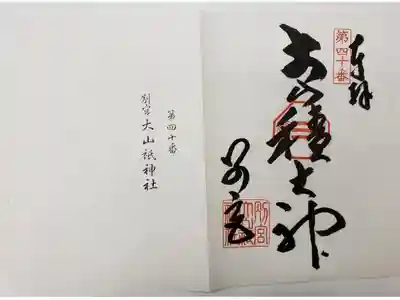 奉拝
第四十番
大山積大神
別宮
第四十番
別宮 大山祇神社